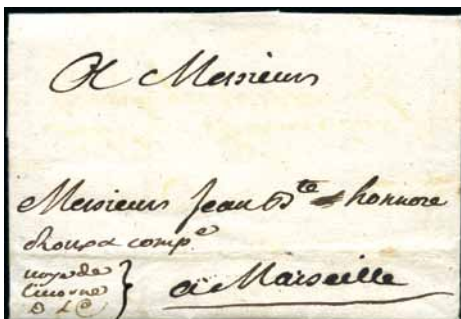 A Messieurs
Messieurs Jean Bte honnore
& compe
voye de
Livorne
D L C
} a Marseille